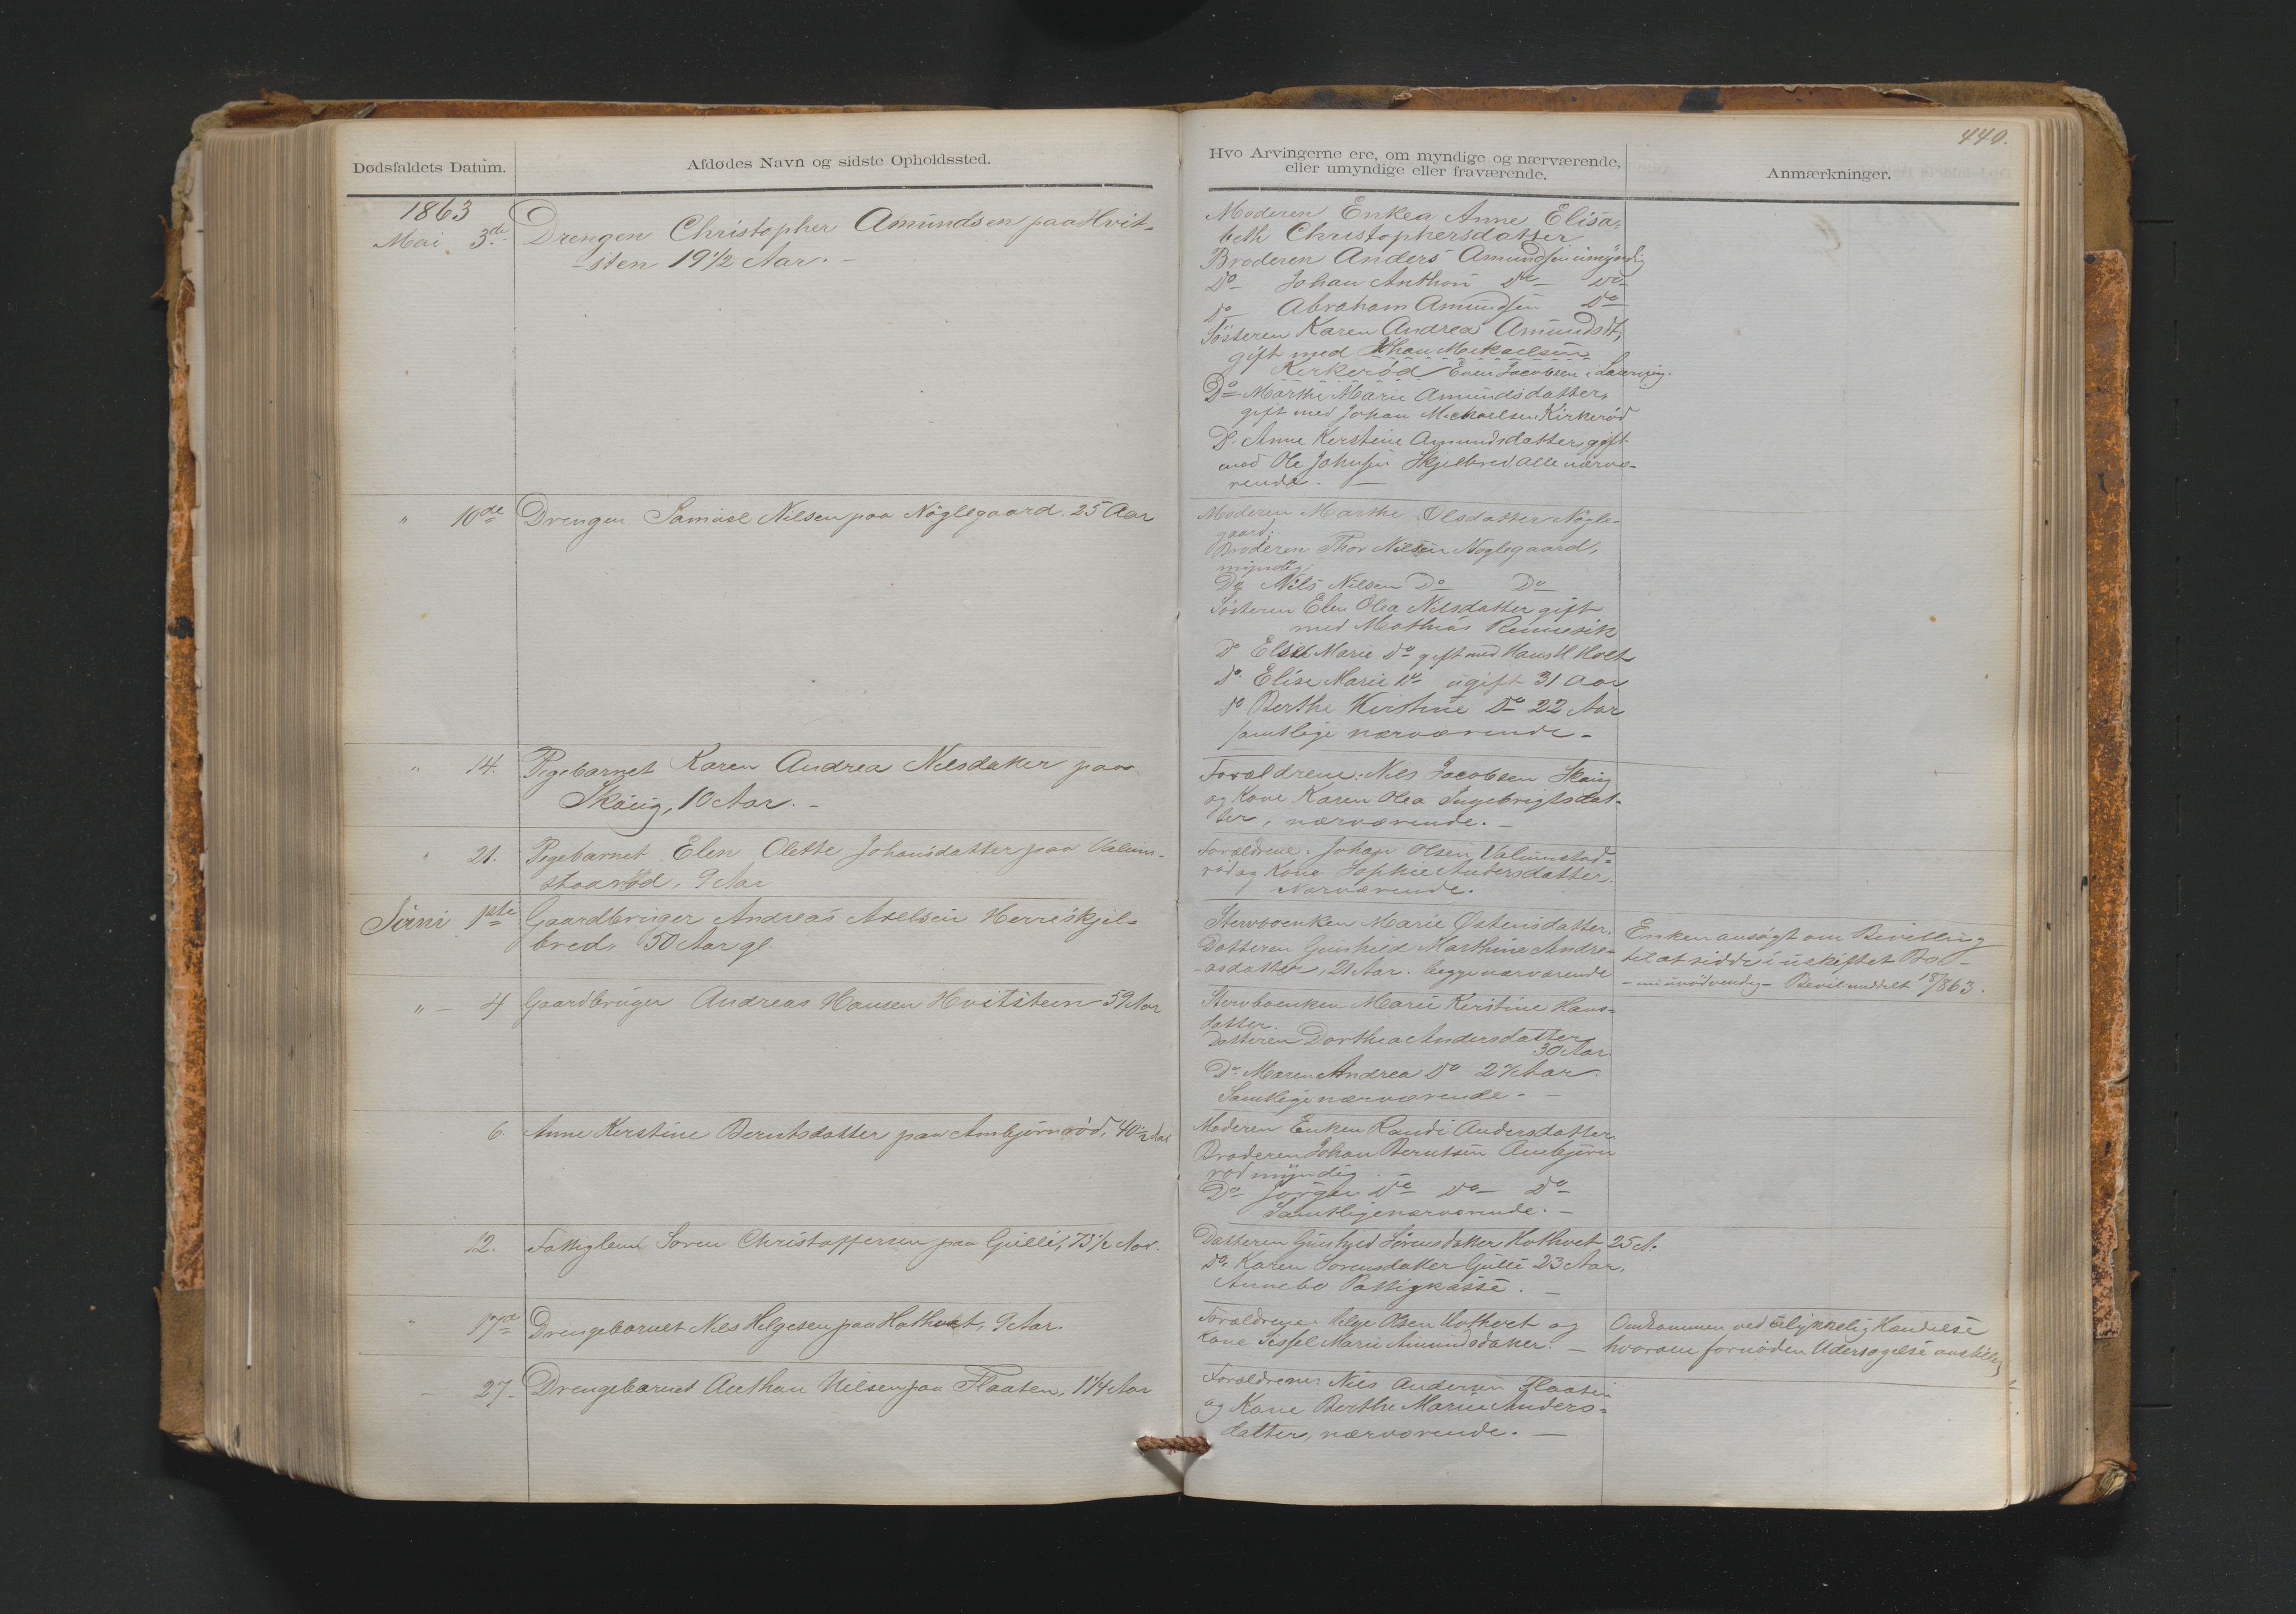 440.
Dødsfaldets Datum.
Afdødes Navn og sidste Opholdssted.
Hvo Arvingerne ere, om myndige og nærværende,
eller umyndige eller fraværende.
Anmærkninger.
1863
Mai 3de Drengen Christopher Amundsen paa Hvit-
-sten 19 1/2 Aar. -
Moderen Enkea Anne Elisa-
beth Christophersdatter
Broderen Anders Amundsen umyndig
Do Johan Anthon Do - Do
Do Abraham Amundsen Do
Søsteren Karen Andrea Amundsdt,
gift med Johan Mekaelsen
Kirkerød Even Jacobsen i Laurvig.
Do Marthe Marie Amundsdatter,
gift med Johan Mickaelsen Kirkerød
Do. Anne Kerstine Amundsdatter gift
med Ole Johnsen Skjelbred. alle nærvæ-
rende. -
" 10de Drengen Samuel Nilsen paa Nøglegaard. 25 Aar
Moderen Marthe Olsdatter Nøgle-
gaard;
Broderen Thor Nilsen Nøglegaard,
myndig;
Do Nils Nilsen Do Do
Søsteren Elen Olea Nilsdatter gift
med Mathias
Do Else Marie Do gift med Hans H Holt
do. Elise Marie Do ugift 31 Aar
Do Berthe Kirstine Do 22 Aar
samtlige nærværende -
" 14. Pigebarnet Karen Andrea Nilsdatter paa
Skoug, 10 Aar. -
Forældrene: Nils Jacobsen Skoug
og Kone Karen Olea Ingebrigtsdat-
ter, nærværende. -
" 21. Pigebarnet Elen Olette Johansdatter paa Valum-
stadrød, 9 Aar
Forældrene: Johan Olsen Valumstad-
rød og Kone Sophie Andersdatter.
Nærværende.
Juni 1ste Gaardbruger Andreas Axelsen Herreskjel-
bred, 50 Aar gl.
Stervboenken Marie Østensdatter.
Datteren Gunhild Marthine Andre-
-asdatter, 21 Aar. begge nærværende
Enken ansøgt om Bevilling
til at sidde i uskiftet Bo -
- Bevil. meddelt 18/ 863.
" - 4 Gaardbruger Andreas Hansen Hvitsteen 59 Aar
Stervboenken Marie Kerstine Hans-
datter.
Datteren Dorthea Andersdatter
30 Aar.
Do. Maren Andrea Do 24 Aar.
Samtlige nærværende - -
6. Anne Kerstine Berntsdatter paa Ambjørnrød, 40 1/2 Aar
Moderen Enken Randi Andersdatter.
Broderen Johan Berntsen Ambjørn
rød myndig. -
Do Jørgen Do Do - Do -
Samtlige nærværende. -
12. Fattiglem Soren Christoffersen paa Gulli, 73 1/2 Aar.
Datteren Gunhild Sørensdatter Hothvet 25 A.
Do. Karen Sorensdatter Gulli 23 Aar.
Annebo Fattigkasse. -
" 17de Drengebarnet Nils Helgesen paa Hothvet, 9 Aar.
Forældrene: Helge Olsen Hothvet og
Kone Sissel Marie Amundsdatter. -
Omkommen ved ulykkelig Hændelse
hvorom fornøden Undersøgelse anstilles
- 27. Drengebarnet Anthon Nilsen paa Flaaten, 1 1/4 Aar
Forældrene: Nils Andersen Flaaten
og Kone Berthe Marie Anders-
datter, nærværende. -